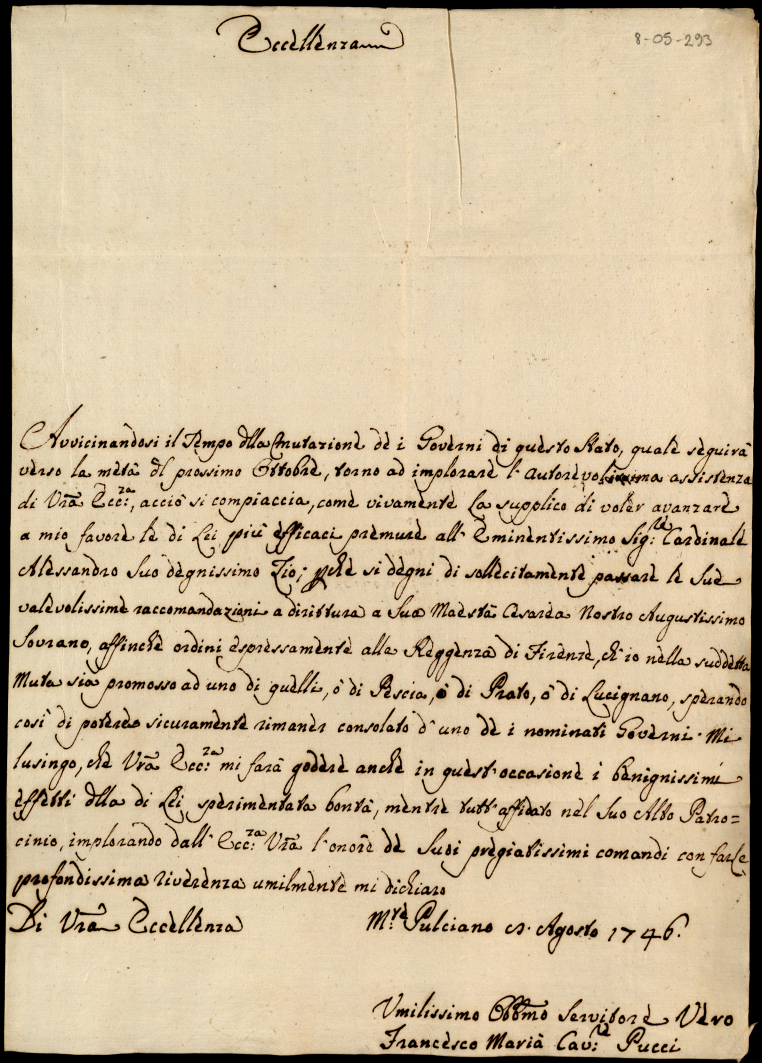 Eccellenza
8-05-293
Avvicinandosi il Tempo dlla Mutazione de i Governi di questo Stato, quale seguirà
verso la metà dl prossimo Ottobre, torno ad implorare l'autorevolissima assistenza
di Vrã Ecc:za, acciò si compiaccia, come vivamente La supplico di voler avanzare
a mio favore le di Lei più efficaci premure all'Eminentissimo Sig:re Cardinale
Alessandro Suo degnissimo Zio; pchè si degni di sollecitamente passare le Sue
valevolissime raccomandazioni a dirittura a Sua Maestà Cesarea Nostro Augustissimo
Sovrano, affinchè ordini espressamente alla Reggenza di Firenze, ch'io nella suddetta
Muta sia promosso ad uno di quelli, ò di Pescia, ò di Prato, ò di Lucignano, sperando
così di potere sicuramente rimaner consolato d'uno de i nominati Governi. Mi
lusingo, che Vrã Ecc:za mi farà godere anche in quest'occasione i benignissimi
effetti dlla di Lei sperimentata bontà, mentre tutt'affidato nel Suo Alto Patro=
cinio, implorando dall'Ecc:za Vrã l'onore de Suoi pregiatissimi comandi con farle
profondissima riverenza umilmente mi dichiaro
Di Vrã Eccellenza
M:te Pulciano Agosto 1746.
Umilissimo Obbmo Servitore Vero
Francesco Maria Cav:re Pucci